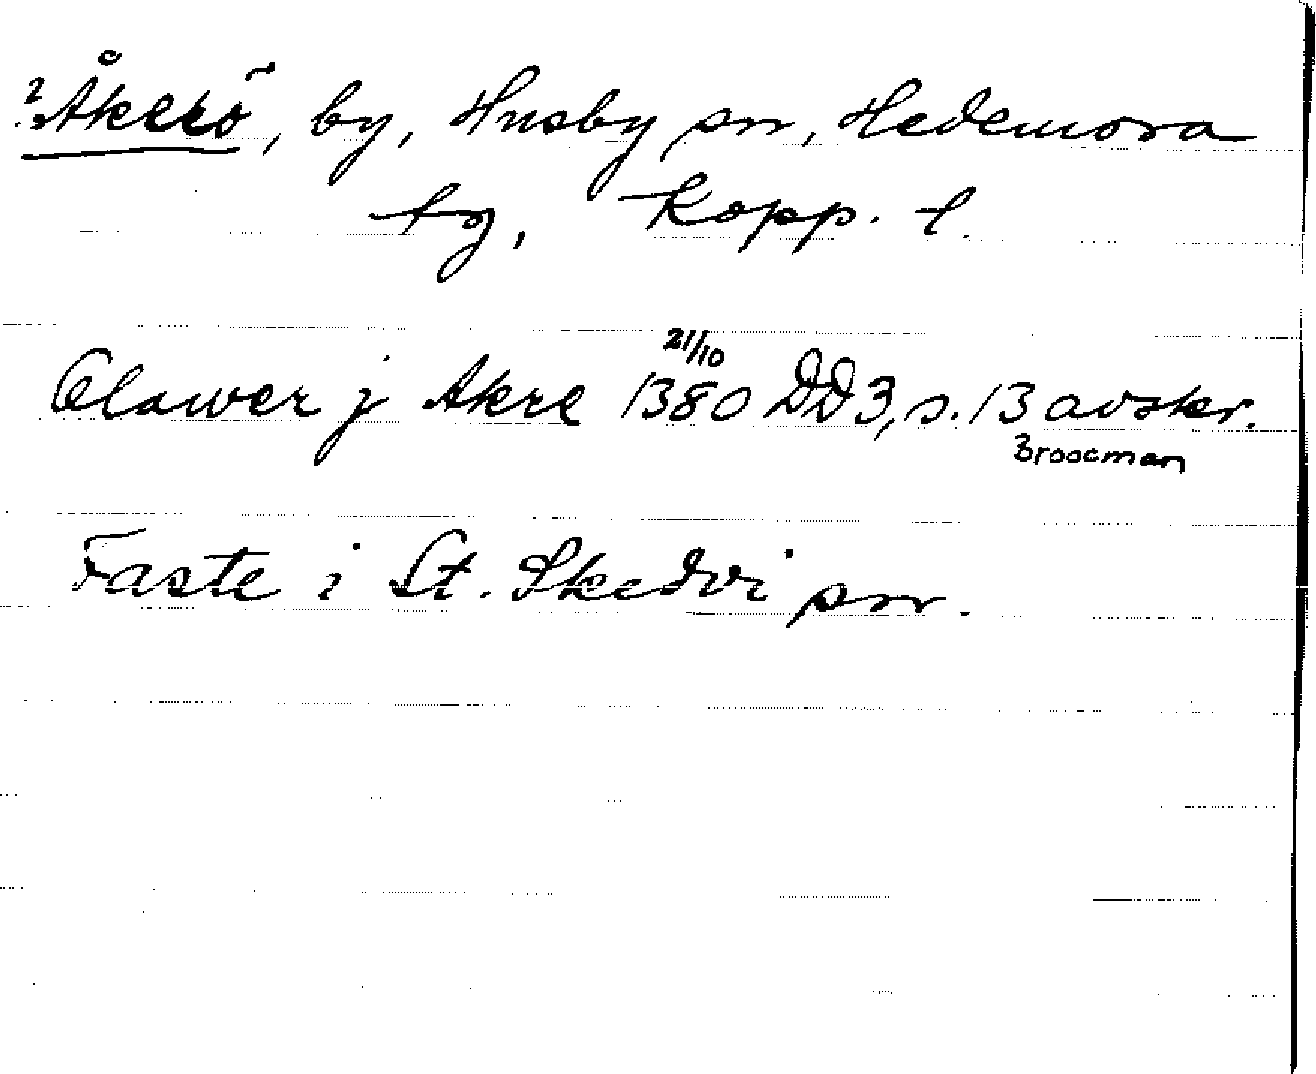 ?Åkerö, by, Husby sn, Hedemora
tg, Kopp. l.
Olawer j Akre 21/10 1380 DD3, s. 13 avskr.
Broocman
Faste i St. Skedvi sn.